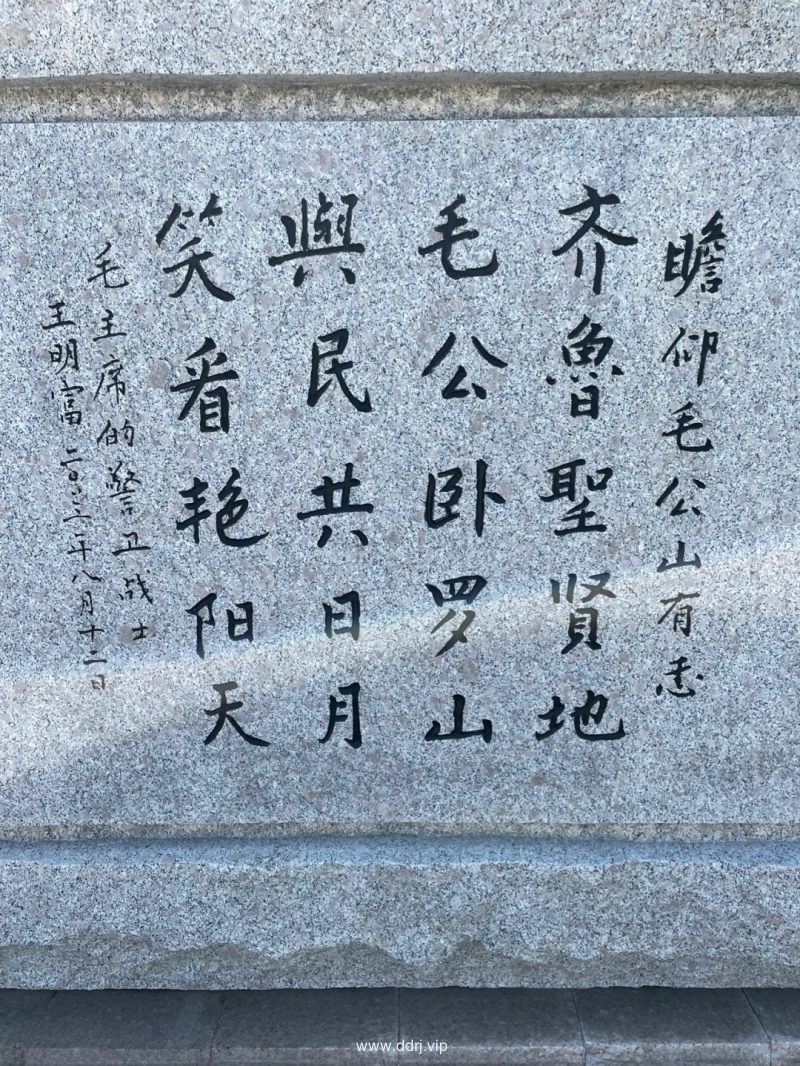 瞻仰毛公山有悉
齐魯聖賢地
毛公卧罗山
與民共日月
笑看艳阳天
毛主席的警卫战士
王明富二〇二三年八月十二日
www.ddrj.vip